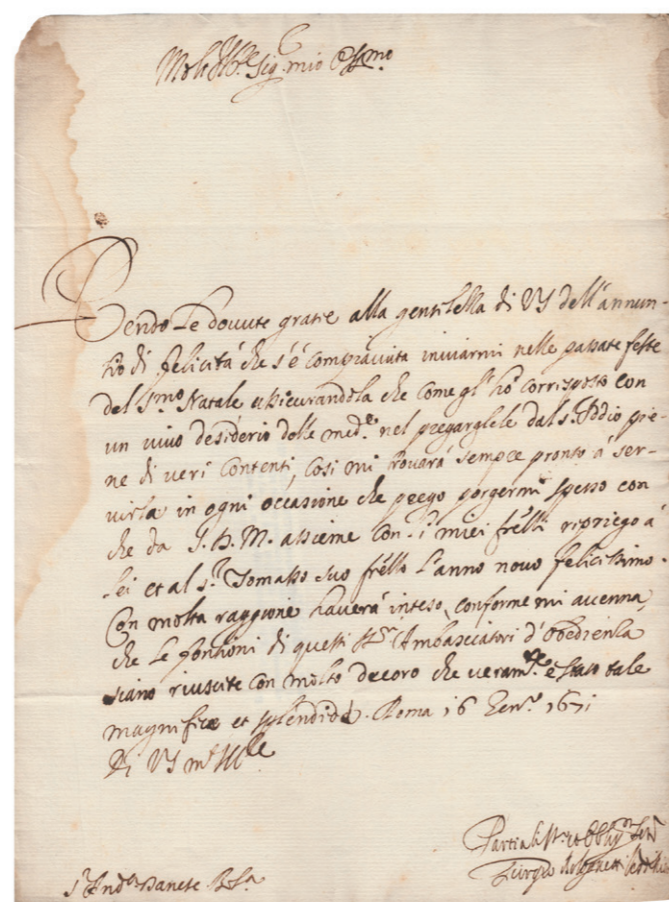 Molt Ill.re Sig. mio Oss.mo
Rendo le dovute gratie alla gentilezza di VS dell'annun-
tio di felicità che s'è compiaciuta inviarmi nelle passate feste
del S.mo Natale assicurandola che come gl'hò corrisposto con
un vivo desiderio delle med.e nel pregarglele dal S. Iddio pie-
ne di veri contenti, così mi trovarà sempre pronto à ser-
virla in ogni occasione che prego porgermi spesso con
che da S. D. M. assieme con i miei frēlli ripriego à
lei et al s.r Tomasso suo frēllo l'anno novo felicissimo.
Con molta raggione haverà inteso, conforme mi accenna,
che le fontioni di questi SS.ri Ambasciatori d'obedienza
siano riuscite con molto decoro che veram.te è stato tale
magnifico et splendido. Roma 16 Gen.o 1671
Di VS m.to Ill.re
Partialiss.mo et Obblig.mo Ser.
S.r And.a